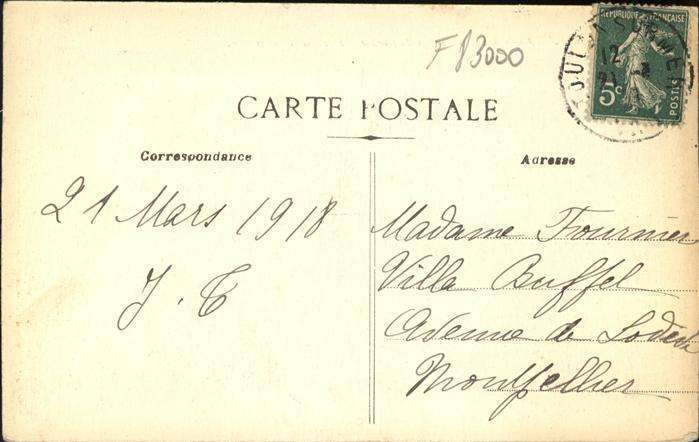 F83000
REPUBLIQUE FRANCAISE
12
21 - 3
5c
POSTES
CARTE POSTALE
Correspondance
Adresse
21 Mars 1918
J. T
Madame Fournier
Villa Buffel
Avenue de Lodève
Montpellier